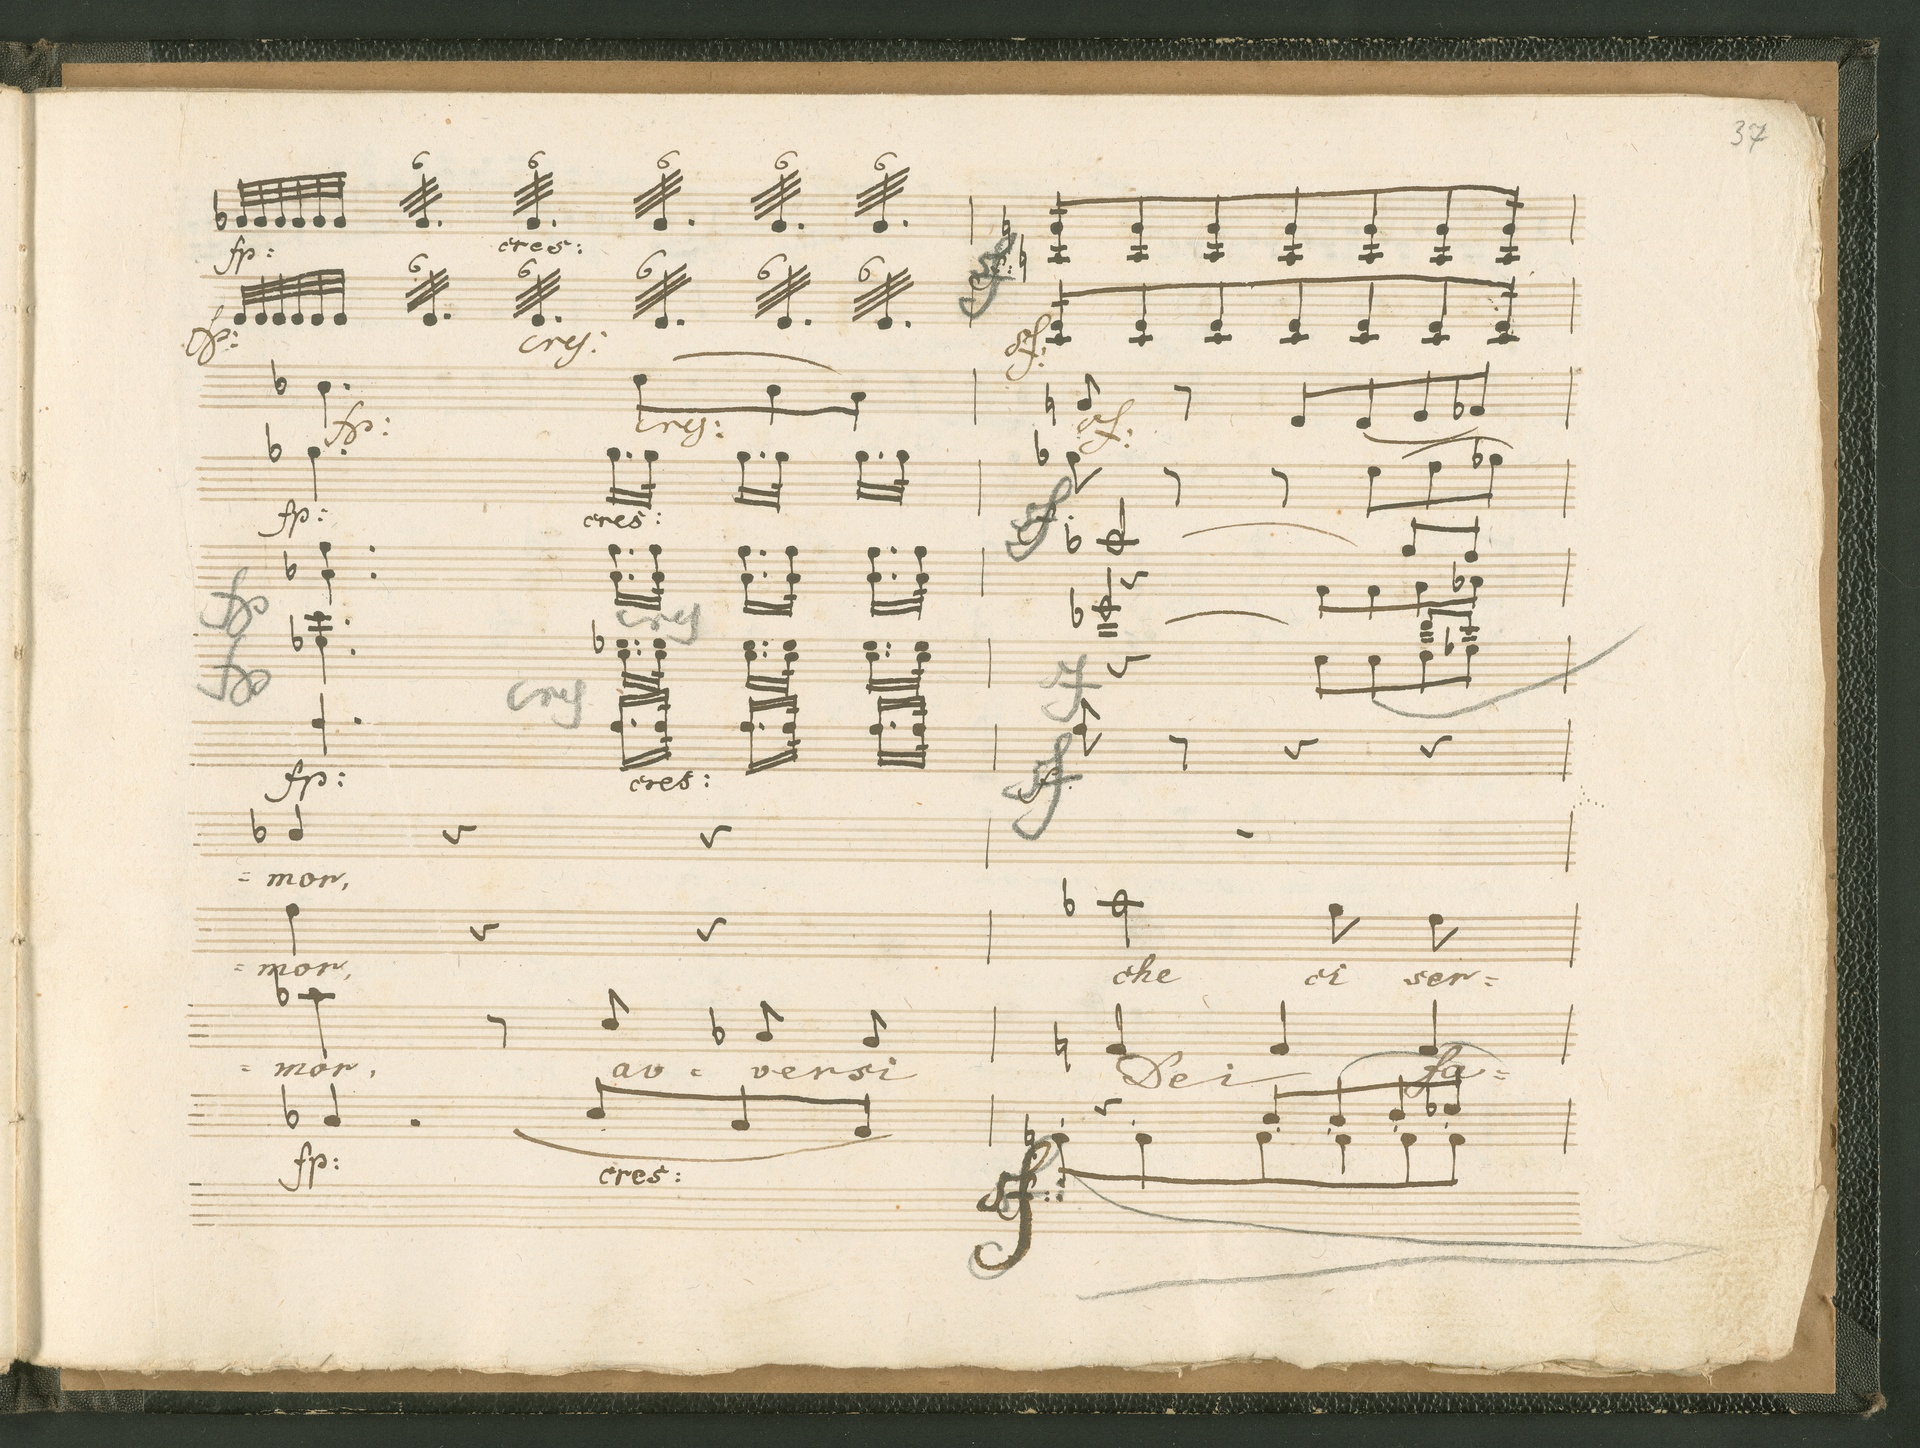 37
6 6 6 6 6
fp: cres:
6 6 6 6 6
fp: cres: sf:
fp: cres: sf:
fp: cres: sf
fp cres
fp cres sf
fp: cres: sf
= mor,
= mor, che ci ser=
= mor, av = versi Dei fa=
fp: cres: sf: